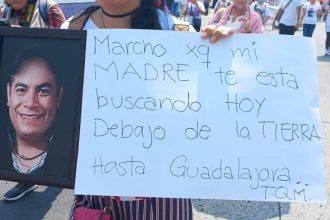 Marcho xq mi
MADRE te esta
buscando HOY
Debajo de la TIERRA
Hasta Guadalajara
TQM.